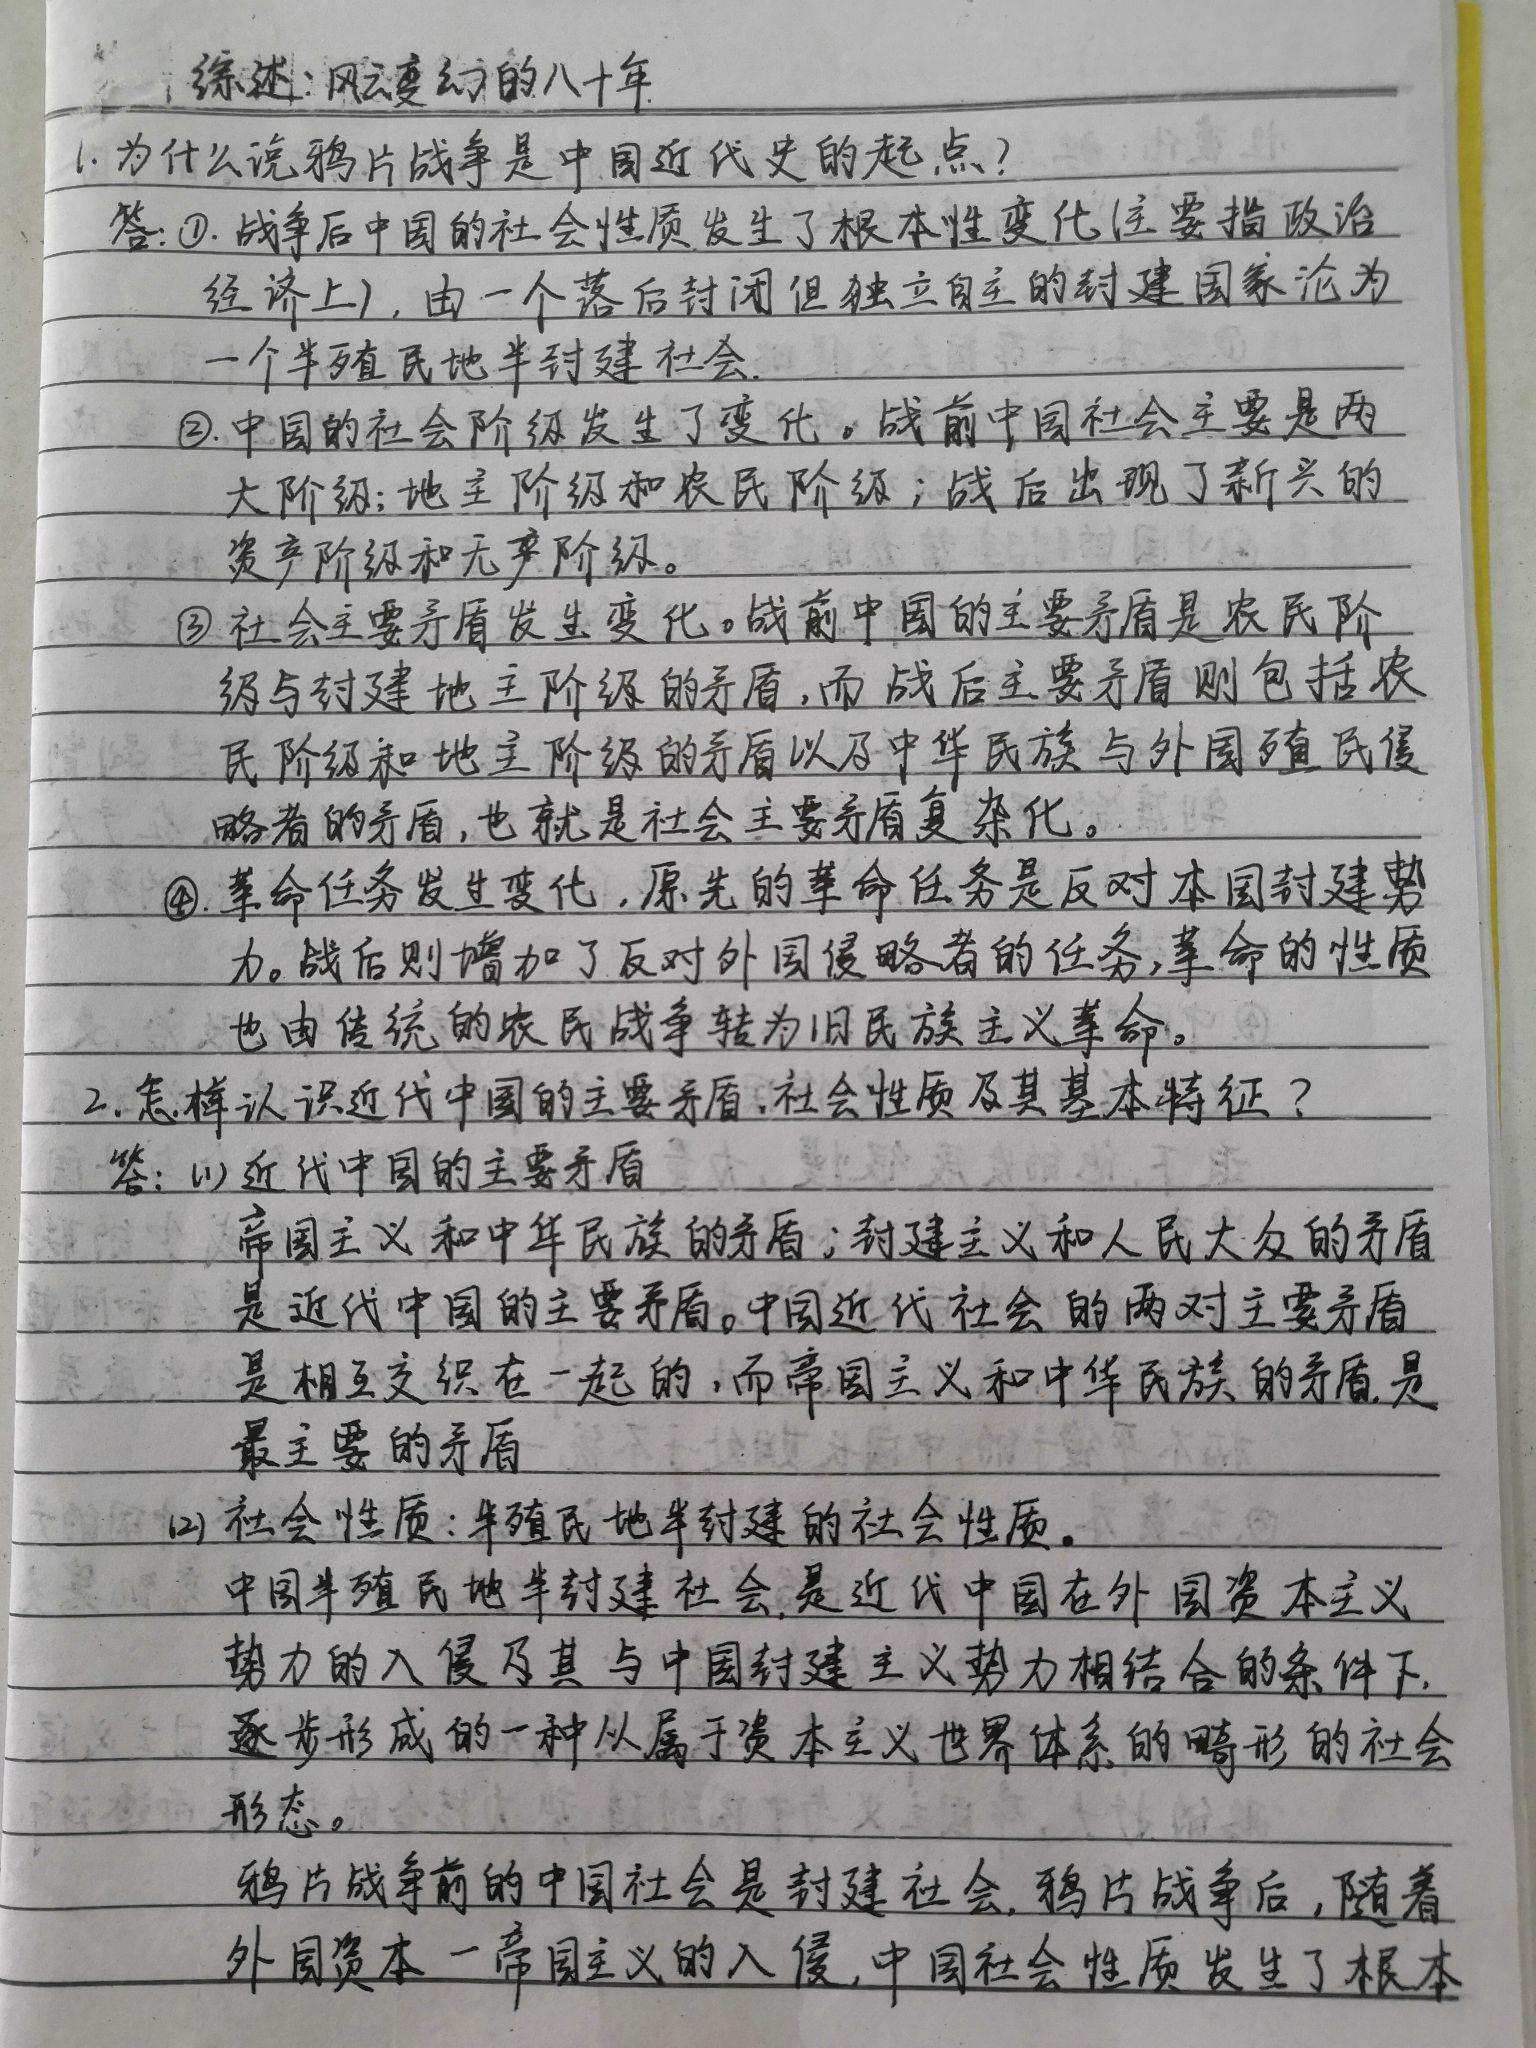 综述:风云变幻的八十年
1.为什么说鸦片战争是中国近代史的起点?
答:①.战争后中国的社会性质发生了根本性变化(主要指政治
经济上),由一个落后封闭但独立自主的封建国家沦为
一个半殖民地半封建社会.
②.中国的社会阶级发生了变化。战前中国社会主要是两
大阶级:地主阶级和农民阶级;战后出现了新兴的
资产阶级和无产阶级。
③社会主要矛盾发生变化。战前中国的主要矛盾是农民阶
级与封建地主阶级的矛盾,而战后主要矛盾则包括农
民阶级和地主阶级的矛盾以及中华民族与外国殖民侵
略者的矛盾,也就是社会主要矛盾复杂化。
④.革命任务发生变化,原先的革命任务是反对本国封建势
力。战后则增加了反对外国侵略者的任务,革命的性质
也由传统的农民战争转为旧民族主义革命。
2.怎样认识近代中国的主要矛盾、社会性质及其基本特征?
答:(1)近代中国的主要矛盾
帝国主义和中华民族的矛盾;封建主义和人民大众的矛盾
是近代中国的主要矛盾。中国近代社会的两对主要矛盾
是相互交织在一起的,而帝国主义和中华民族的矛盾,是
最主要的矛盾
(2)社会性质:半殖民地半封建的社会性质。
中国半殖民地半封建社会,是近代中国在外国资本主义
势力的入侵及其与中国封建主义势力相结合的条件下,
逐步形成的一种从属于资本主义世界体系的畸形的社会
形态。
鸦片战争前的中国社会是封建社会,鸦片战争后,随着
外国资本一帝国主义的入侵,中国社会性质发生了根本